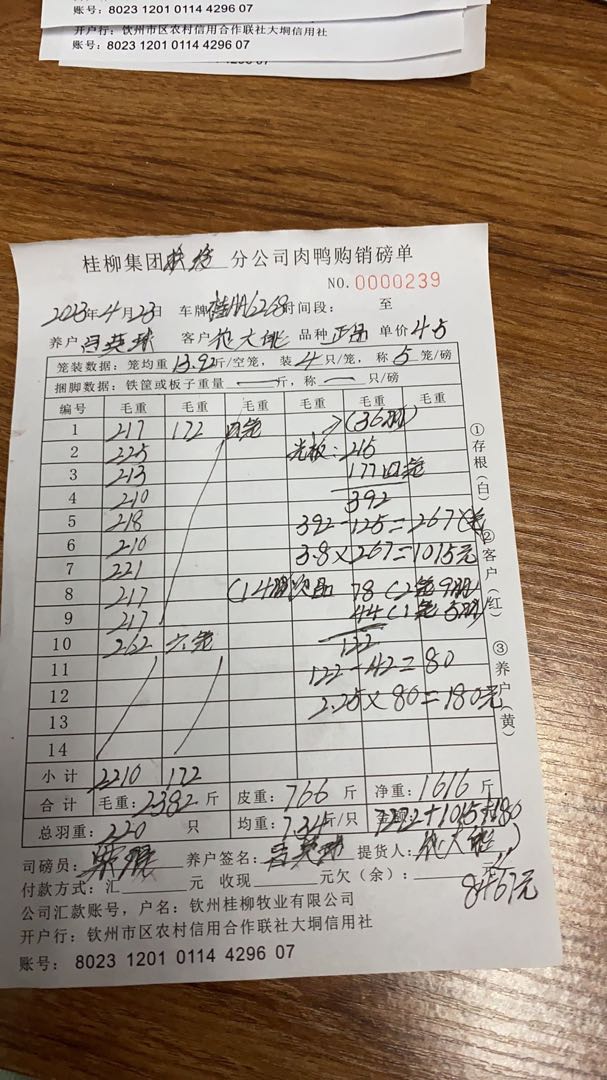 账号: 8023 1201 0114 4296 07
开户行: 钦州市区农村信用合作联社大垌信用社
账号: 8023 1201 0114 4296 07
桂柳集团 分公司肉鸭购销磅单
NO. 0000239
2023年4月23日 车牌 6268 时间段: 至
养户 客户 品种 正品 单价 4.5
笼装数据: 笼均重 13.92 斤/空笼, 装 4 只/笼, 称 5 笼/磅
捆脚数据: 铁筐或板子重量 — 斤, 称 — 只/磅
编号 毛重 毛重 毛重 毛重 毛重 毛重
1 217 172 四笼 (36羽)
2 225 光板: 215
3 213 177四笼
4 210 392
5 218 392-125=267
6 210 3.8×267=1015元
7 221
8 217 (14羽次品 78 (2笼9羽)
9 217 44 (1笼5羽)
10 262 六笼 122
11 122-42=80
12 2.25×80=180元
13
14
小计 2210 172
合计 毛重: 2382 斤 皮重: 766 斤 净重: 1616 斤
总羽重: 220 只 均重: 7.345斤/只 金额: 7272+1015+180
司磅员: 养户签名: 提货人:
付款方式: 汇 元 收现 元欠(余): 元
8467元
公司汇款账号, 户名: 钦州桂柳牧业有限公司
开户行: 钦州市区农村信用合作联社大垌信用社
账号: 8023 1201 0114 4296 07
①存根(白) ②客户(红) ③养户(黄)